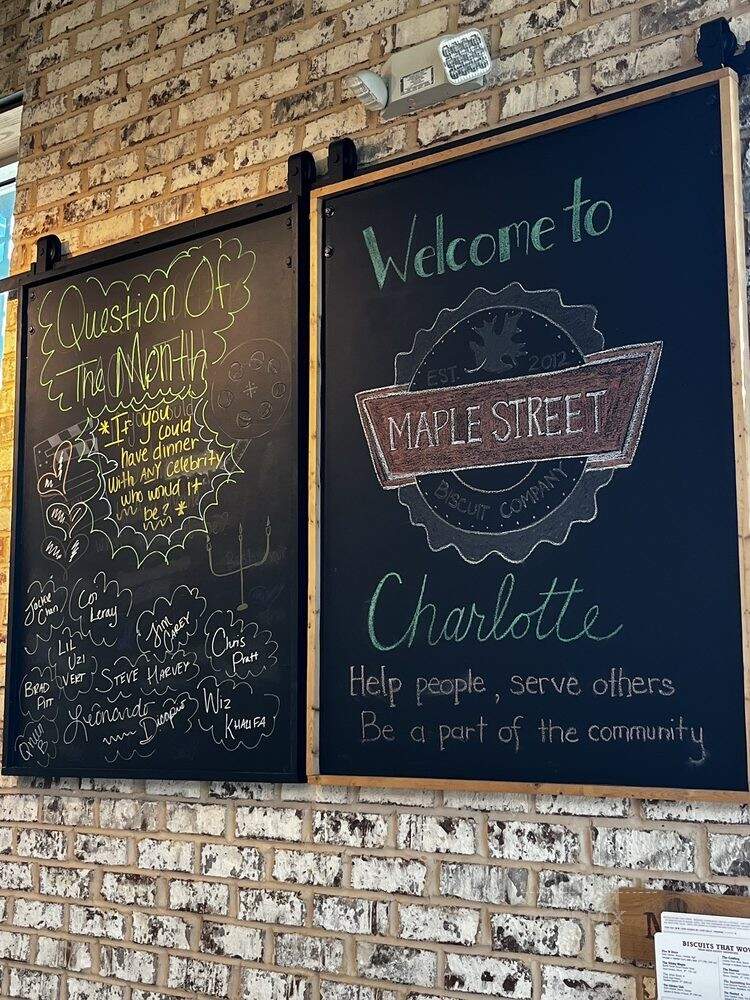 Question Of
The Month
*If you
could
have dinner
with ANY celebrity
who would it
be?*
Jackie
Chan
Coi
Leray
Jim
CAREY
Chris
Pratt
LIL
UZI
VERT
STEVE HARVEY
BRAD
PITT
Leonardo
Dicaprio
WIZ
KHALIFA
Welcome to
EST. 2012
MAPLE STREET
BISCUIT COMPANY
Charlotte
Help people, serve others
Be a part of the community
M
BISCUITS THAT WO